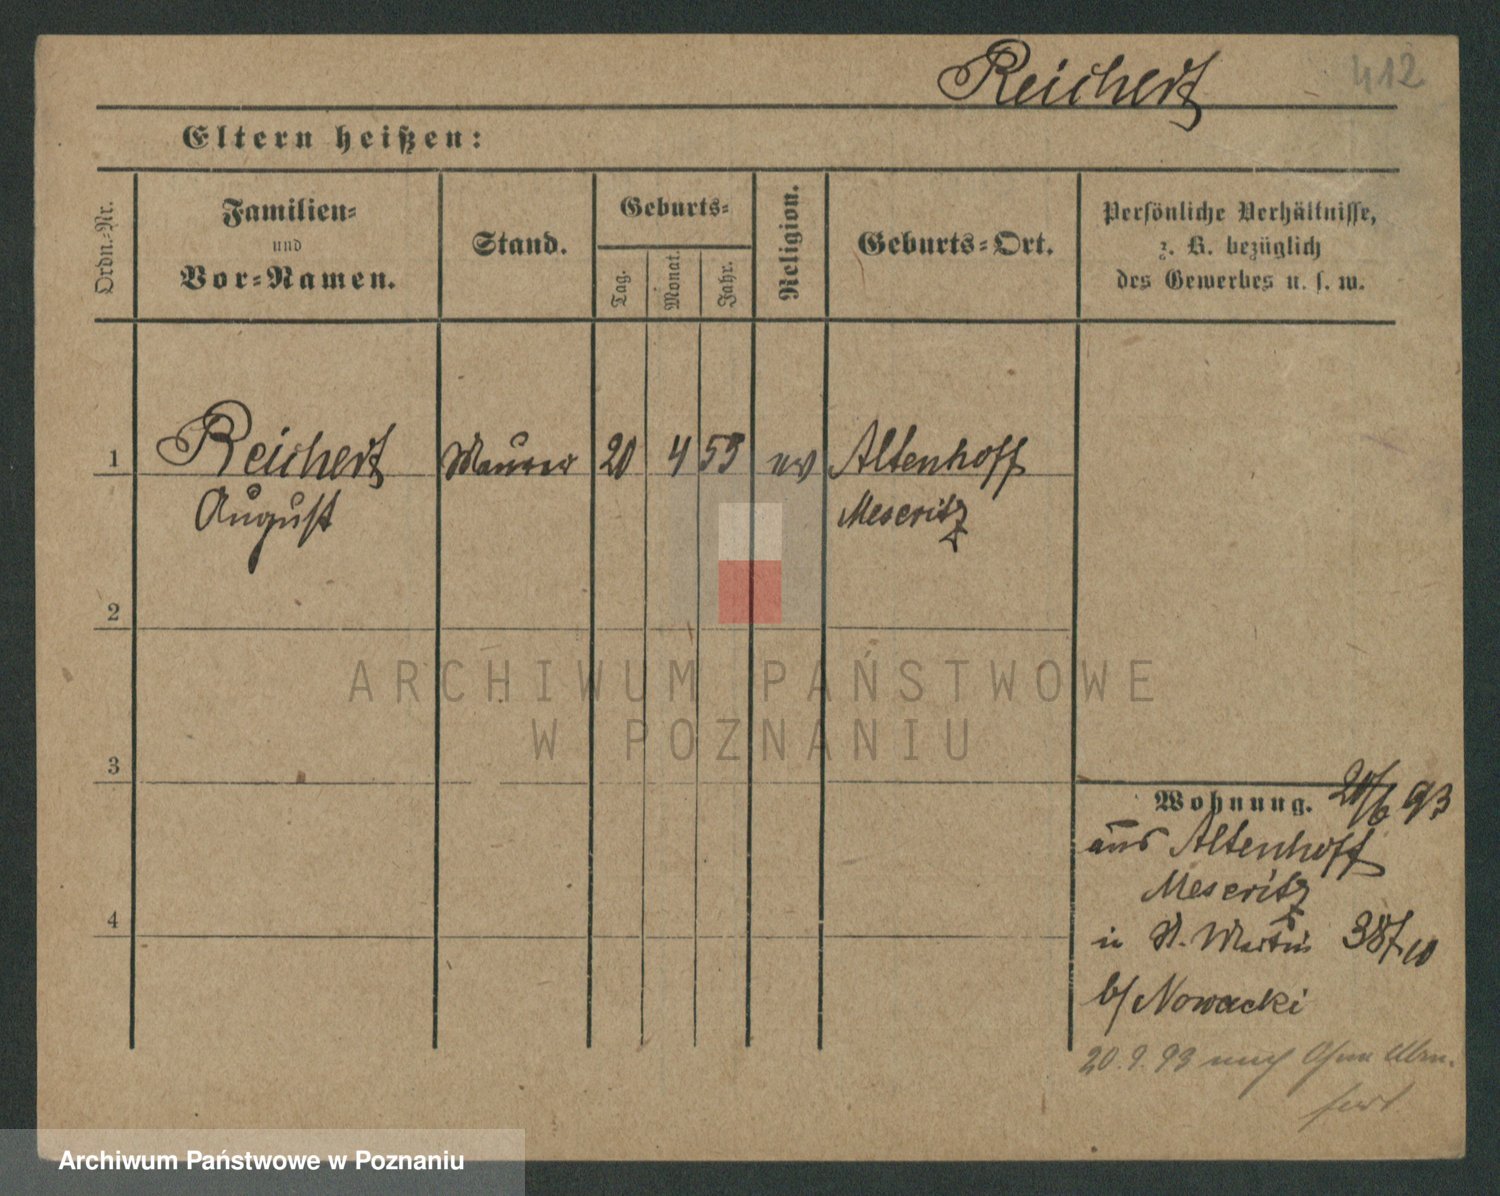 Reichert
412
Eltern heißen:
Ordn.-Nr.
Familien-
und
Vor-Namen.
Stand.
Geburts-
Tag.
Monat.
Jahr.
Religion.
Geburts-Ort.
Persönliche Verhältnisse,
z. B. bezüglich
des Gewerbes u. s. w.
1 Reichert Maurer 20 4 53 ev Altenhoff
August Meseritz
2
ARCHIWUM PAŃSTWOWE
W POZNANIU
3
Wohnung. 20/6 93
aus Altenhoff
Meseritz
4
in St. Martin 38/10
b/ Nowacki
20.9.93 nach
Archiwum Państwowe w Poznaniu